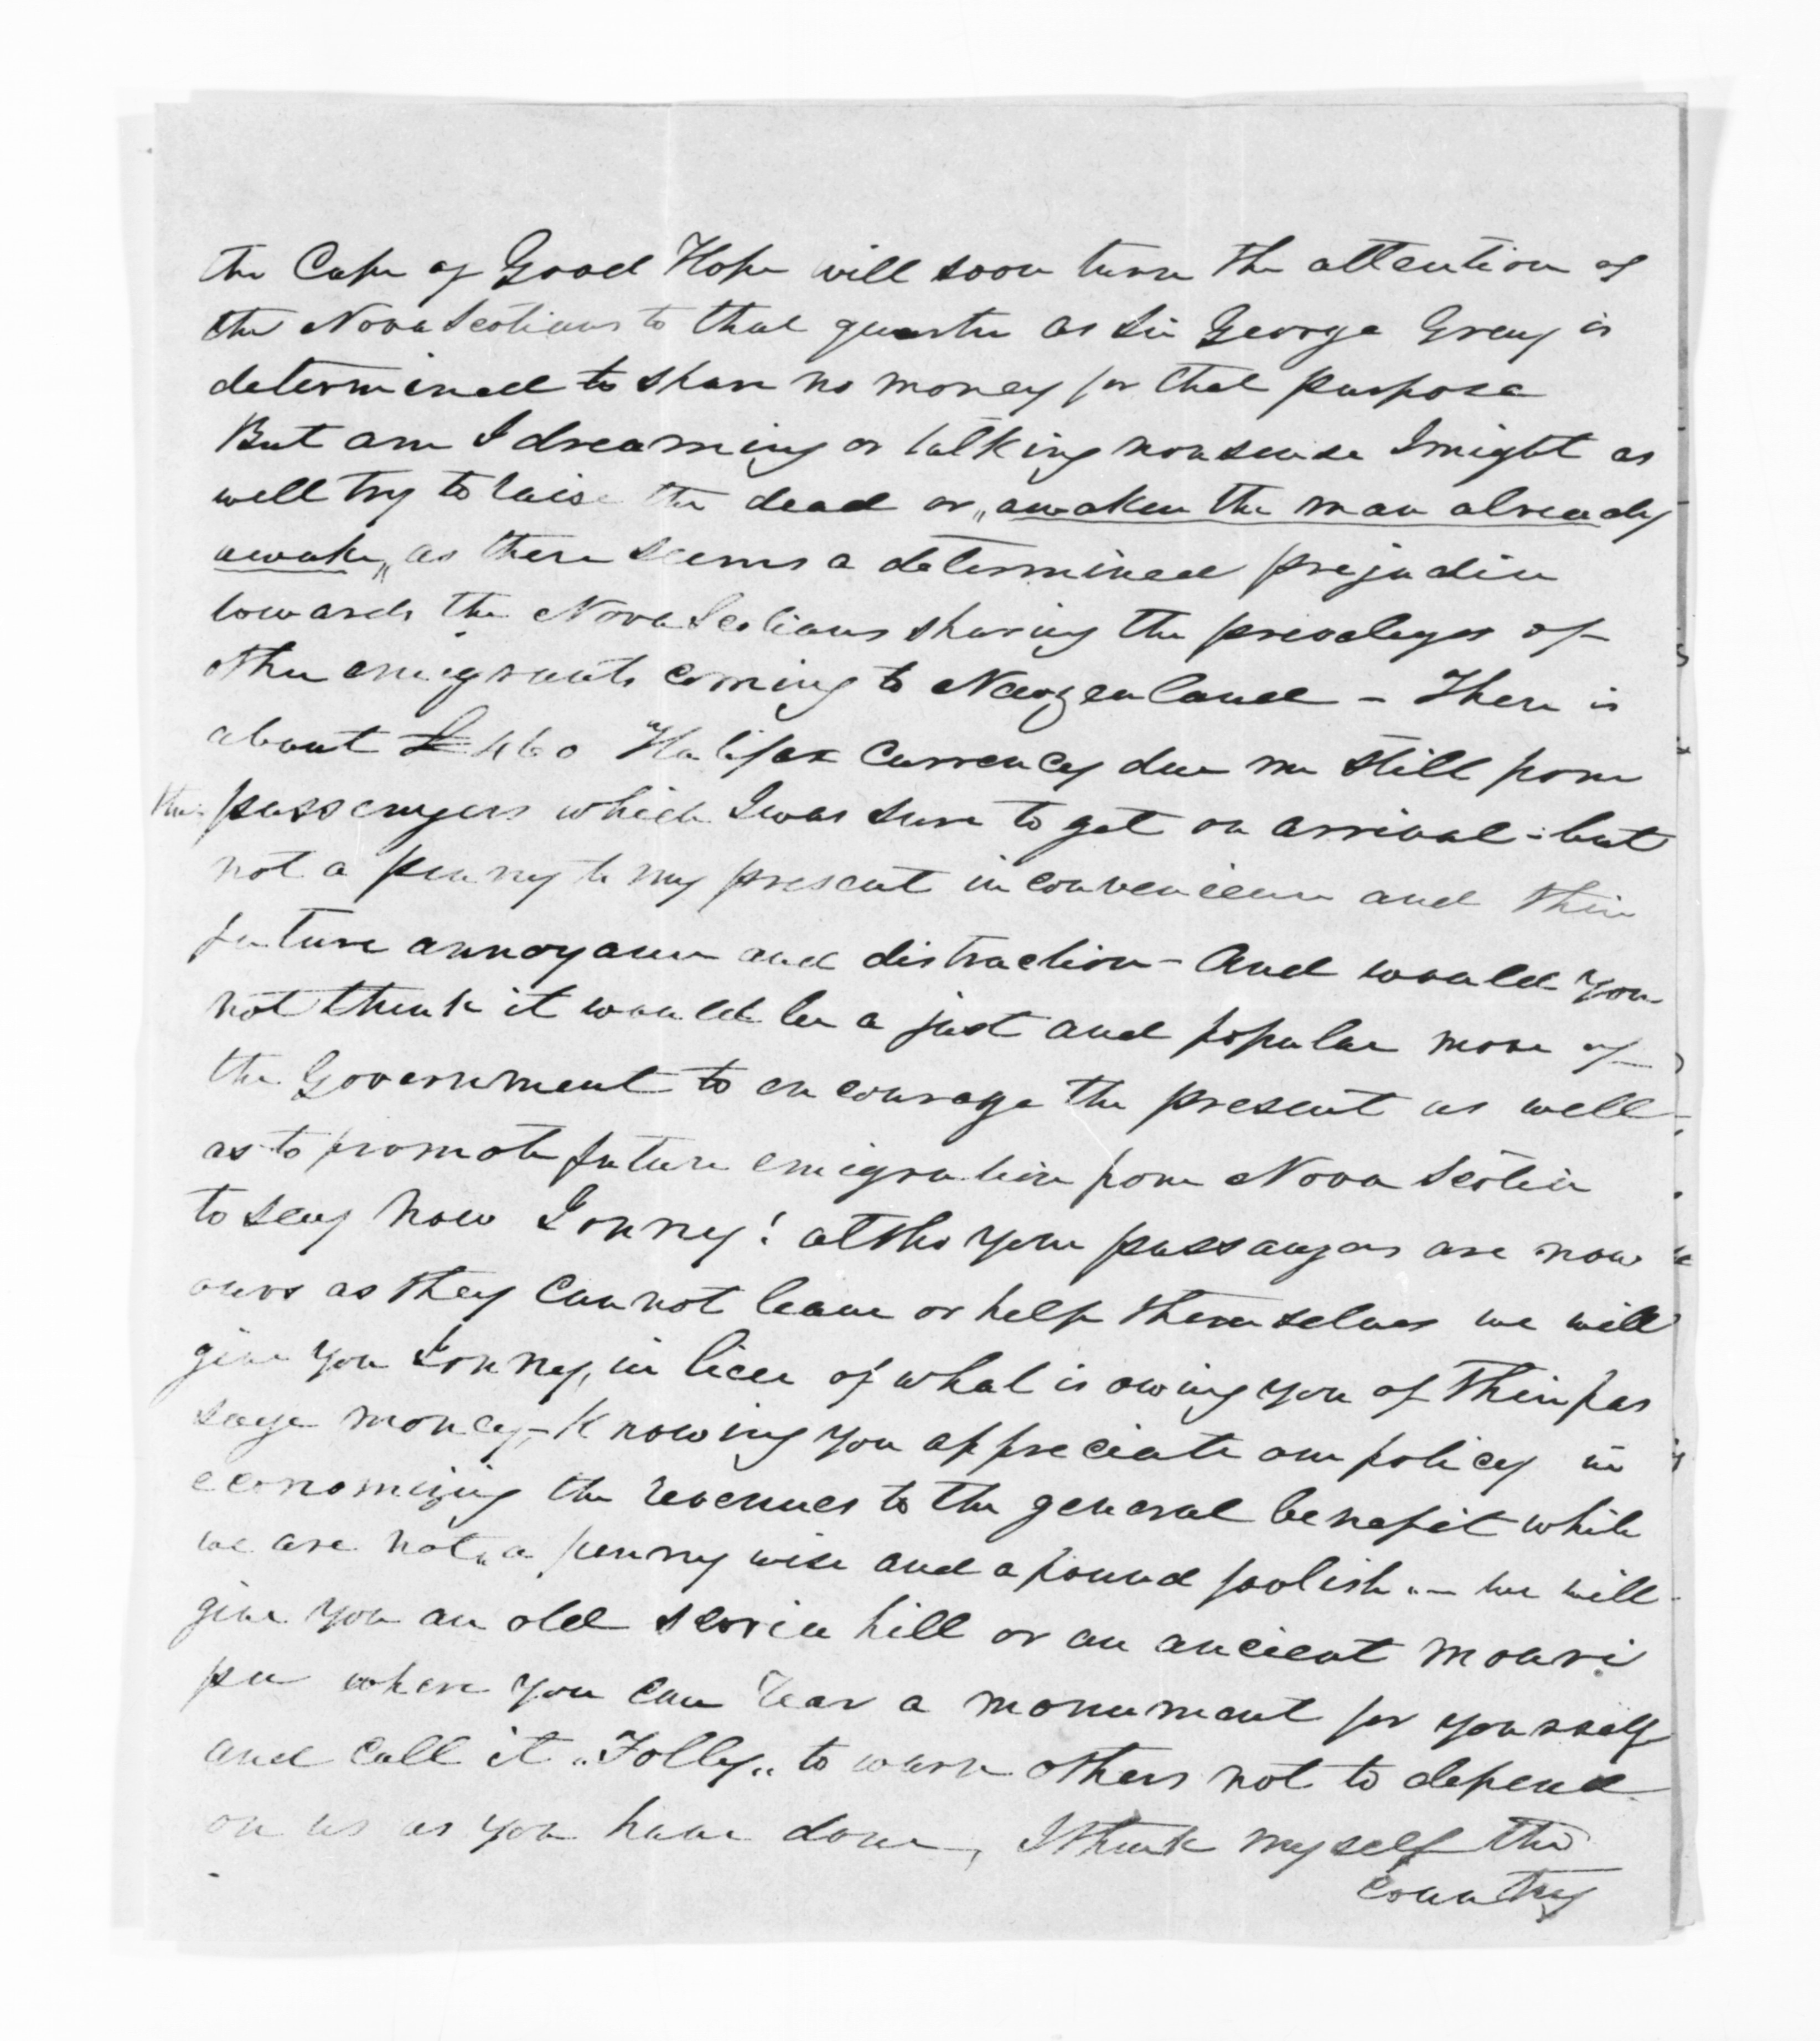 the Cape of Good Hope will soon turn the attention of
the Nova Scotians to that quarter as Sir George Grey is
determined to share no money for that purpose
But am I dreaming or talking nonsense I might as
well try to raise the dead or "awaken the man already
awake" as there seems a determined prejudice
towards the Nova Scotians sharing the priveleges of
other emigrants coming to Newzealand - There is
about £460 Halifax Currency due me still from
the passengers which I was sure to get on arrival - but
not a penny to my present inconvenience and their
future annoyance and distraction - And would you
not think it would be a just and popular move of
the Government to encourage the present as well
as to promote future emigration from Nova Scotia
to say now Sonny! altho your passangers are now
ours as they cannot leave or help themselves we will
give you Sonny, in lieu of what is owing you of their pas
sage money, - Knowing you appreciate our policy in
economizing the revenues to the general benefit while
we are not "a penny wise and a pound foolish" - we will
give you an old scoria hill or an ancient moari
pa where you can rear a monument for yourself
and call it "Folly" to warn others not to depend
on us as you have done, I think myself the
Country